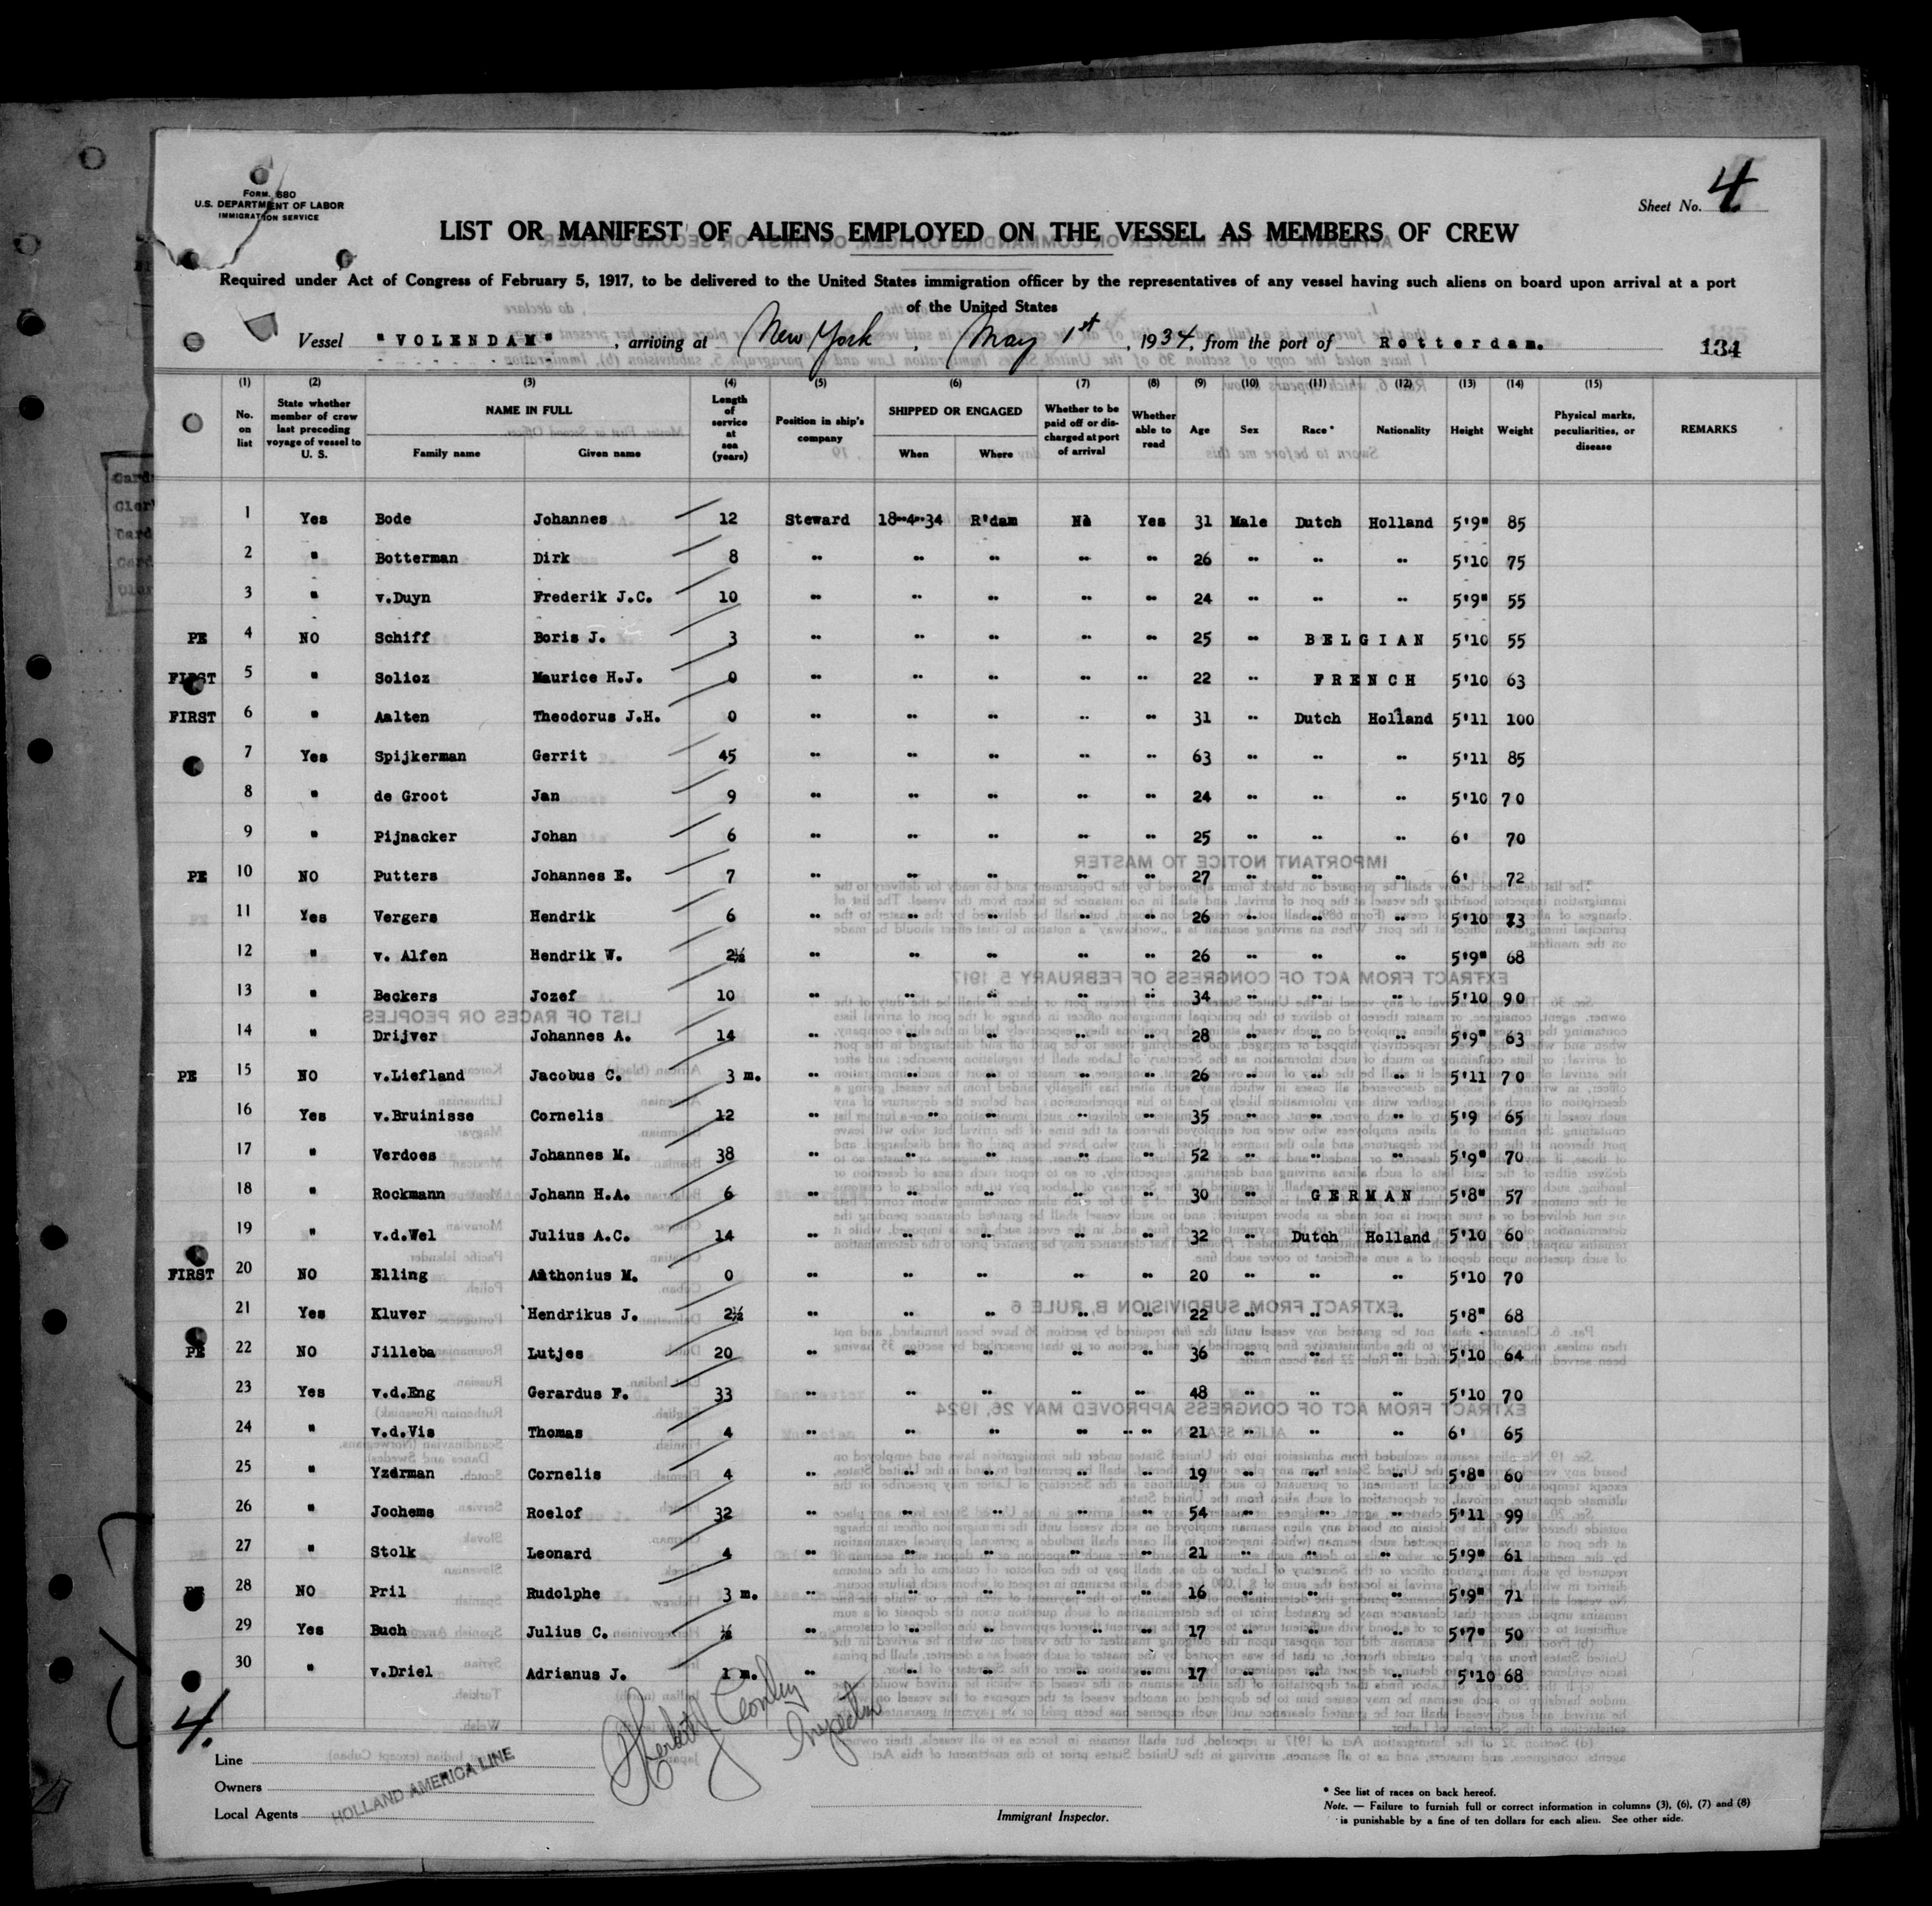 FORM 680
U.S. DEPARTMENT OF LABOR
IMMIGRATION SERVICE
Sheet No. 4
LIST OR MANIFEST OF ALIENS EMPLOYED ON THE VESSEL AS MEMBERS OF CREW
Required under Act of Congress of February 5, 1917, to be delivered to the United States immigration officer by the representatives of any vessel having such aliens on board upon arrival at a port
of the United States
Vessel "VOLENDAM", arriving at New York, May 1st, 1934, from the port of Rotterdam.
134
(1) (2) (3) (4) (5) (6) (7) (8) (9) (10) (11) (12) (13) (14) (15)
No. on list | State whether member of crew last preceding voyage of vessel to U. S. | NAME IN FULL | Length of service at sea (years) | Position in ship's company | SHIPPED OR ENGAGED | Whether to be paid off or discharged at port of arrival | Whether able to read | Age | Sex | Race* | Nationality | Height | Weight | Physical marks, peculiarities, or disease | REMARKS
Family name | Given name | When | Where
1 Yes Bode Johannes 12 Steward 18-4-34 R'dam No Yes 31 Male Dutch Holland 5'9" 85
2 " Botterman Dirk 8 " " " " " 26 " " " 5'10 75
3 " v.Duyn Frederik J.C. 10 " " " " " 24 " " " 5'9" 55
PE 4 NO Schiff Boris J. 3 " " " " " 25 " BELGIAN 5'10 55
FIRST 5 " Solioz Maurice H.J. 0 " " " " " 22 " FRENCH 5'10 63
FIRST 6 " Aalten Theodorus J.H. 0 " " " " " 31 " Dutch Holland 5'11 100
7 Yes Spijkerman Gerrit 45 " " " " " 63 " " " 5'11 85
8 " de Groot Jan 9 " " " " " 24 " " " 5'10 70
9 " Pijnacker Johan 6 " " " " " 25 " " " 6' 70
PE 10 NO Putters Johannes E. 7 " " " " " 27 " " " 6' 72
11 Yes Vergers Hendrik 6 " " " " " 26 " " " 5'10 73
12 " v. Alfen Hendrik W. 2½ " " " " " 26 " " " 5'9" 68
13 " Beckers Jozef 10 " " " " " 34 " " " 5'10 90
14 " Drijver Johannes A. 14 " " " " " 28 " " " 5'9" 63
PE 15 NO v.Liefland Jacobus C. 3 m. " " " " " 26 " " " 5'11 70
16 Yes v.Bruinisse Cornelis 12 " " " " " 35 " " " 5'9 65
17 " Verdoes Johannes M. 38 " " " " " 52 " " " 5'9" 70
18 " Rockmann Johann H.A. 6 " " " " " 30 " GERMAN 5'8" 57
19 " v.d.Wel Julius A.C. 14 " " " " " 32 " Dutch Holland 5'10 60
FIRST 20 NO Elling Anthonius M. 0 " " " " " 20 " " " 5'10 70
21 Yes Kluver Hendrikus J. 2½ " " " " " 22 " " " 5'8" 68
PE 22 NO Jilleba Lutjes 20 " " " " " 36 " " " 5'10 64
23 Yes v.d.Eng Gerardus F. 33 " " " " " 48 " " " 5'10 70
24 " v.d.Vis Thomas 4 " " " " " 21 " " " 6' 65
25 " Yzerman Cornelis 4 " " " " " 19 " " " 5'8" 60
26 " Jochems Roelof 32 " " " " " 54 " " " 5'11 99
27 " Stolk Leonard 4 " " " " " 21 " " " 5'9" 61
PE 28 NO Pril Rudolphe 3 m. " " " " " 16 " " " 5'9" 71
29 Yes Buch Julius C. ½ " " " " " 17 " " " 5'7" 50
30 " v.Driel Adrianus J. 1 m. " " " " " 17 " " " 5'10 68
4.
Inspector
Line
Owners
Local Agents
HOLLAND AMERICA LINE
Immigrant Inspector.
* See list of races on back hereof.
Note. — Failure to furnish full or correct information in columns (3), (6), (7) and (8)
is punishable by a fine of ten dollars for each alien. See other side.